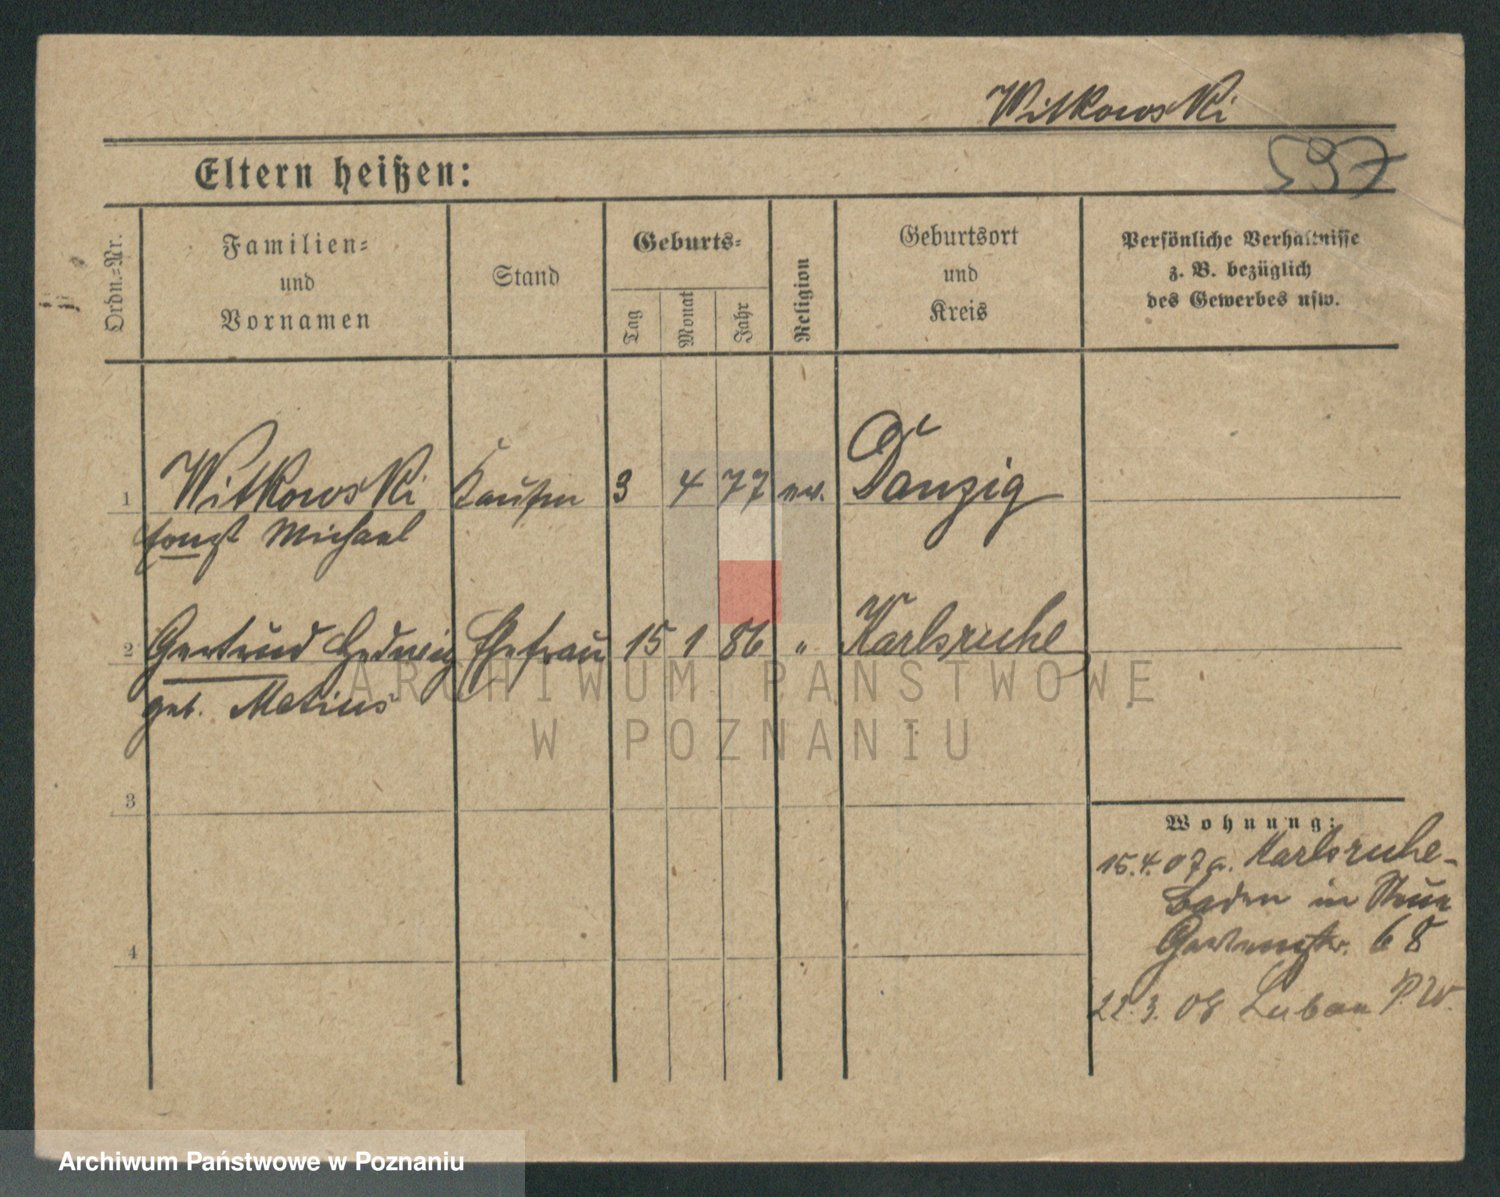 Witkowski
597
Eltern heißen:
Ordn.-Nr.
Familien-
und
Vornamen
Stand
Geburts-
Tag
Monat
Jahr
Religion
Geburtsort
und
Kreis
Persönliche Verhältnisse
z. B. bezüglich
des Gewerbes usw.
1 Witkowski Kaufm 3 4 77 ev. Danzig
Michael
2 Gertrud Hedwig Ehefrau 15 1 86 " Karlsruhe
geb. Matius
3
4
Wohnung:
15.4.07 a. Karlsruhe-
Baden in
Gartenstr. 68
22.3.08 Luban P.W.
ARCHIWUM PAŃSTWOWE
W POZNANIU
Archiwum Państwowe w Poznaniu